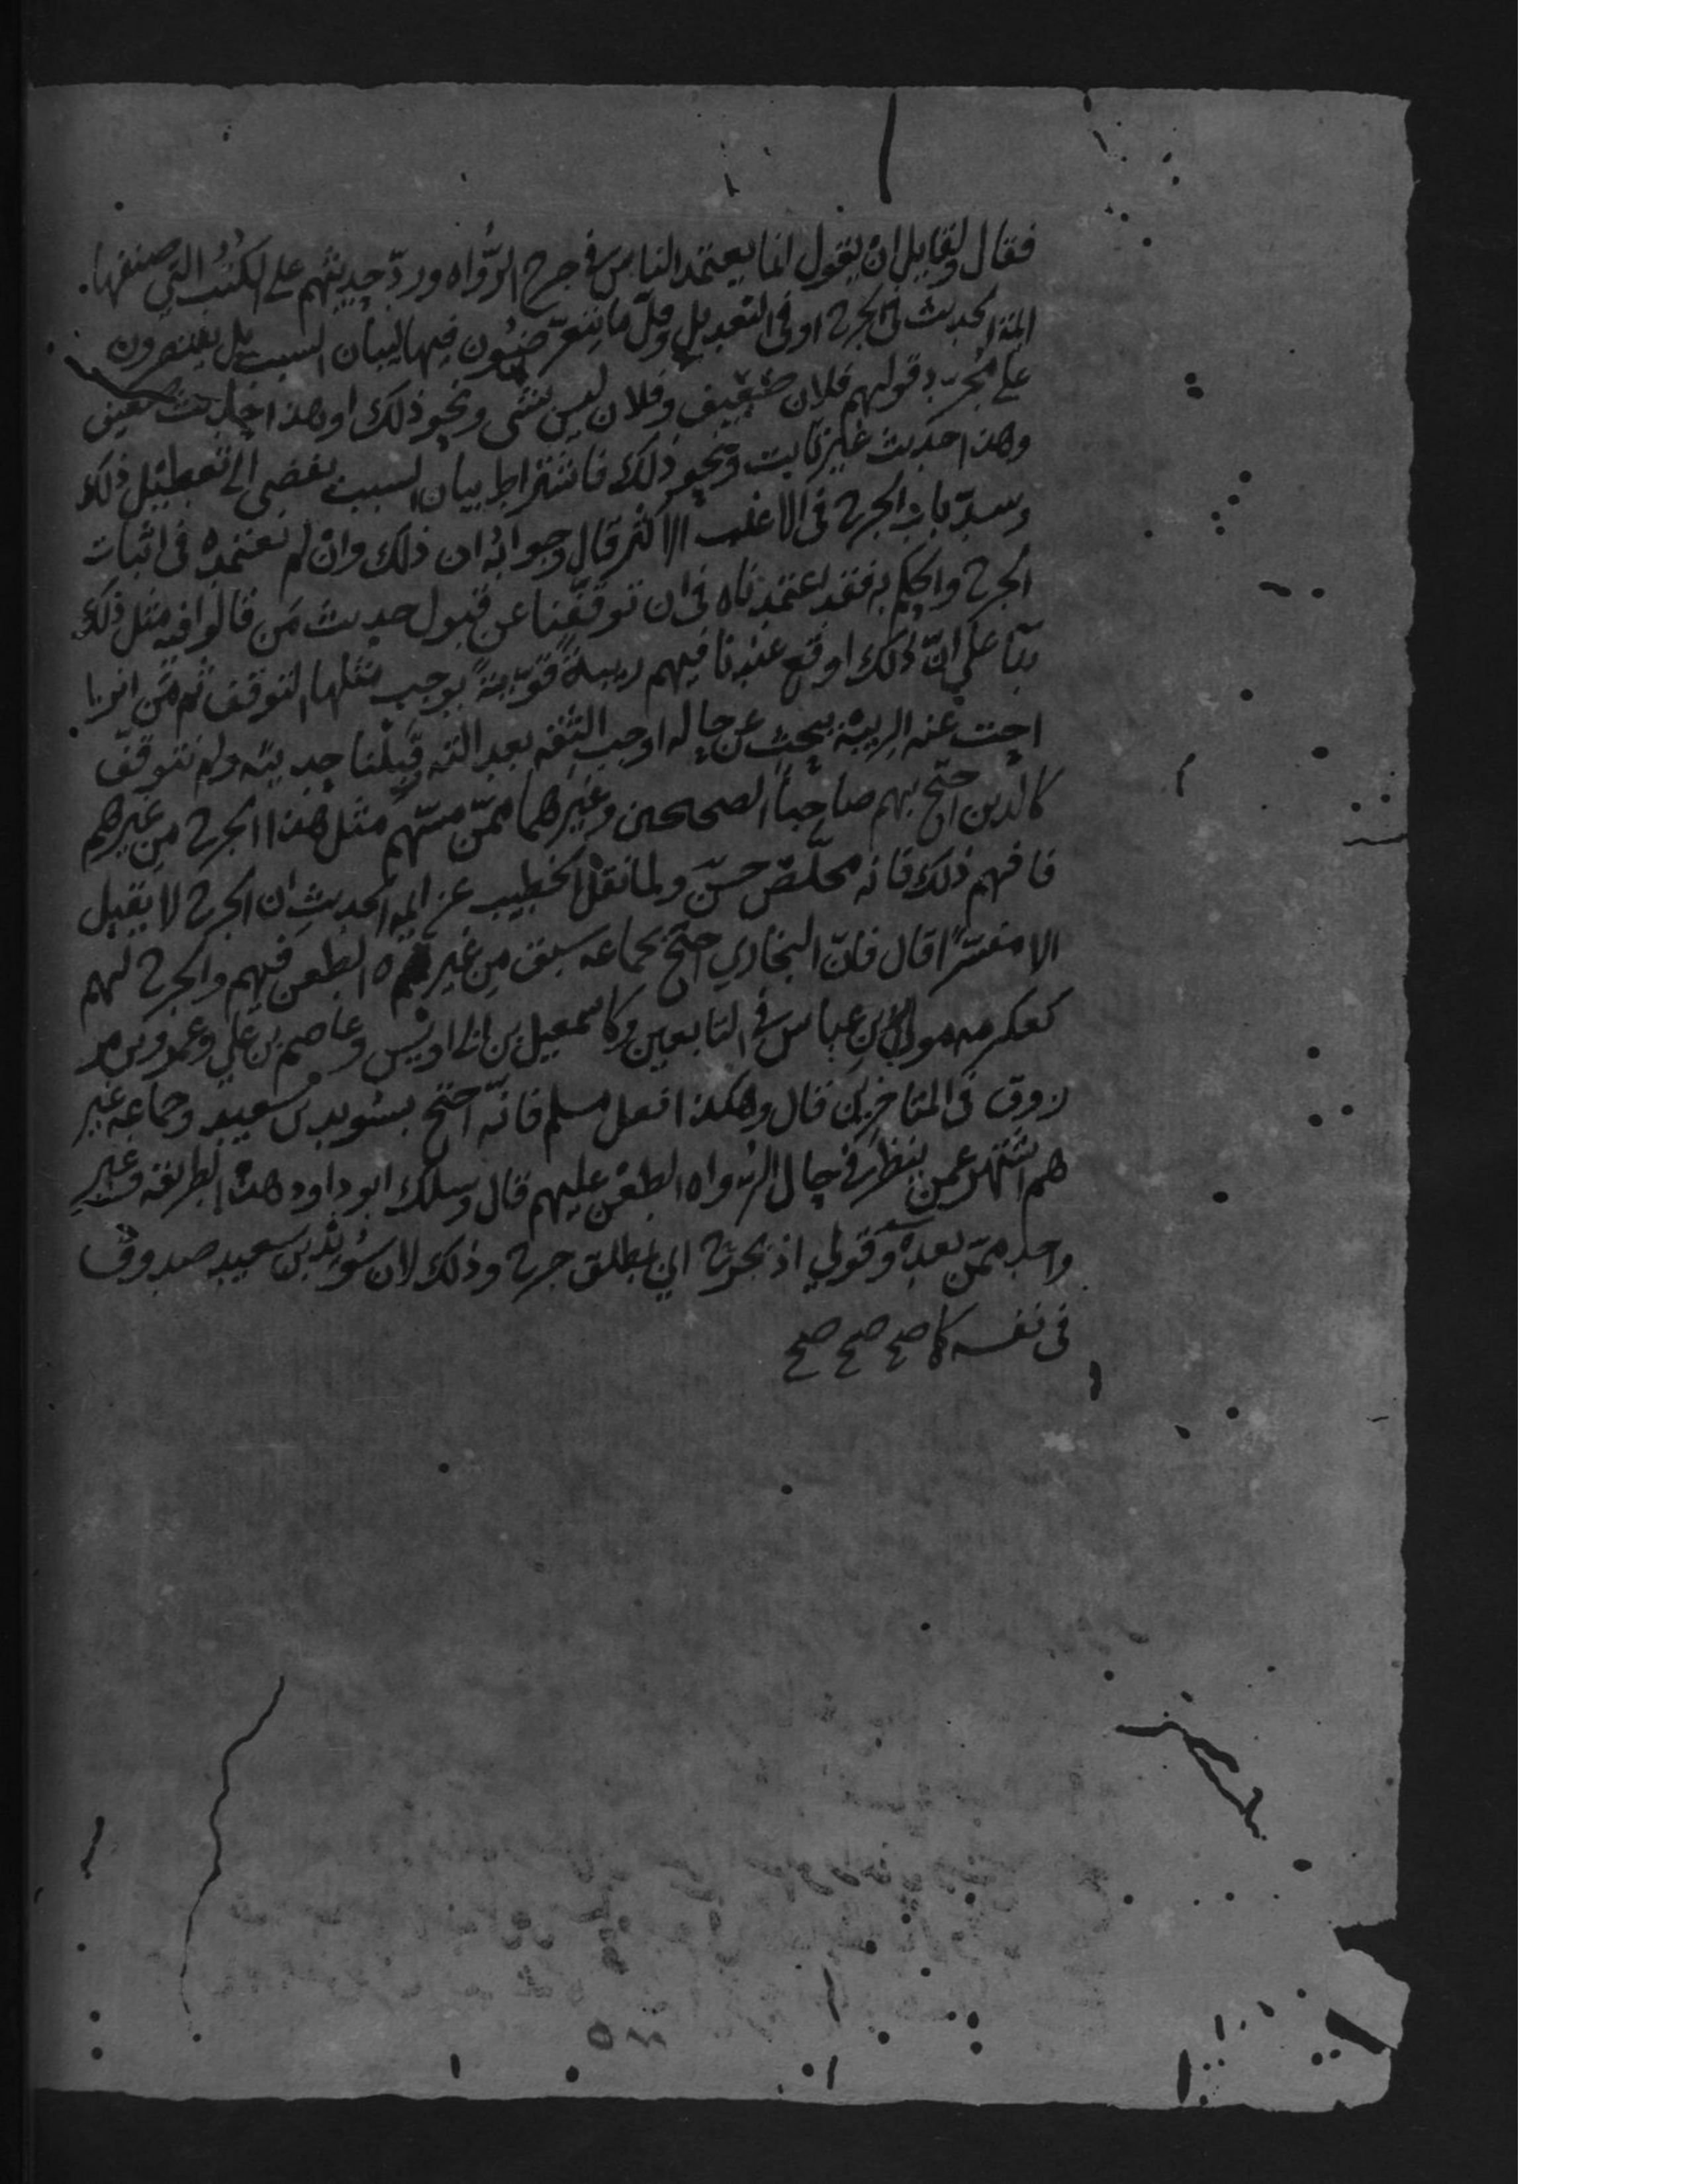 فقال ولقايل ان يقول انما يعتمد الناس في جرح الرّواه وردّ حديثهم على الكتب التي صنفها
ايمة الحديث في الجرح او في التعديل وقلّ ما يتعرّضون فيها لبيان السبب بل يقتصرون
على مجرّد قولهم فلان ضعيف وفلان ليس بشى ونحو ذلك او هذا حديث ضعيف
وهذا حديث غير ثابت ونحو ذلك فاشتراط بيان السبب يفضى الى تعطيل ذلك
وسدّ باب الجرح فى الاغلب الاكثر قال وجوابه ان ذلك وان لم نعتمده فى اثبات
الجرح والحكم به فقد اعتمدناه فى ان توقفنا عن قبول حديث مَن قالوا فيه مثل ذلك
بنآ على انّ ذلك اوقع عندنا فيهم ريبةً قويّةً يوجب مثلها التوقف ثم مَن انزا
احت عنه الريبة ببحث عن حاله اوجب الثقه بعدالته قبلنا حديثه ولم نتوقف
كالذين احتج بهم صاحبا الصحيحين وغيرهما ممّن مسّهم مثل هذا الجرح من غيرهم
فافهم ذلك فانه مخلّص حسن ولما نقل الخطيب عن ايمة الحديث ان الجرح لا يقبل
الا مفسّرًا قال فانّ البخاري احتج بجماعه سبق من غيره الطعن فيهم والجرح لهم
كعكرمه مولى ابن عباس في التابعين وكاسمعيل بن ابى اويس وعاصم بن على وعمرو بن مر
زوق فى المتاخرين قال وهكذا فعل مسلم فانه احتج بسويد بن سعيد وجماعه غير
هم اشتهر عمن ينظر في حال الرواه الطعن عليهم قال وسلك ابو داود هذه الطريقه وغير
واحد ممّن بعده وقولي اذ بجرح اي بمطلق جرح وذلك لان سُويْد بن سعيد صدوق
فى نفسه كما صح صح صح